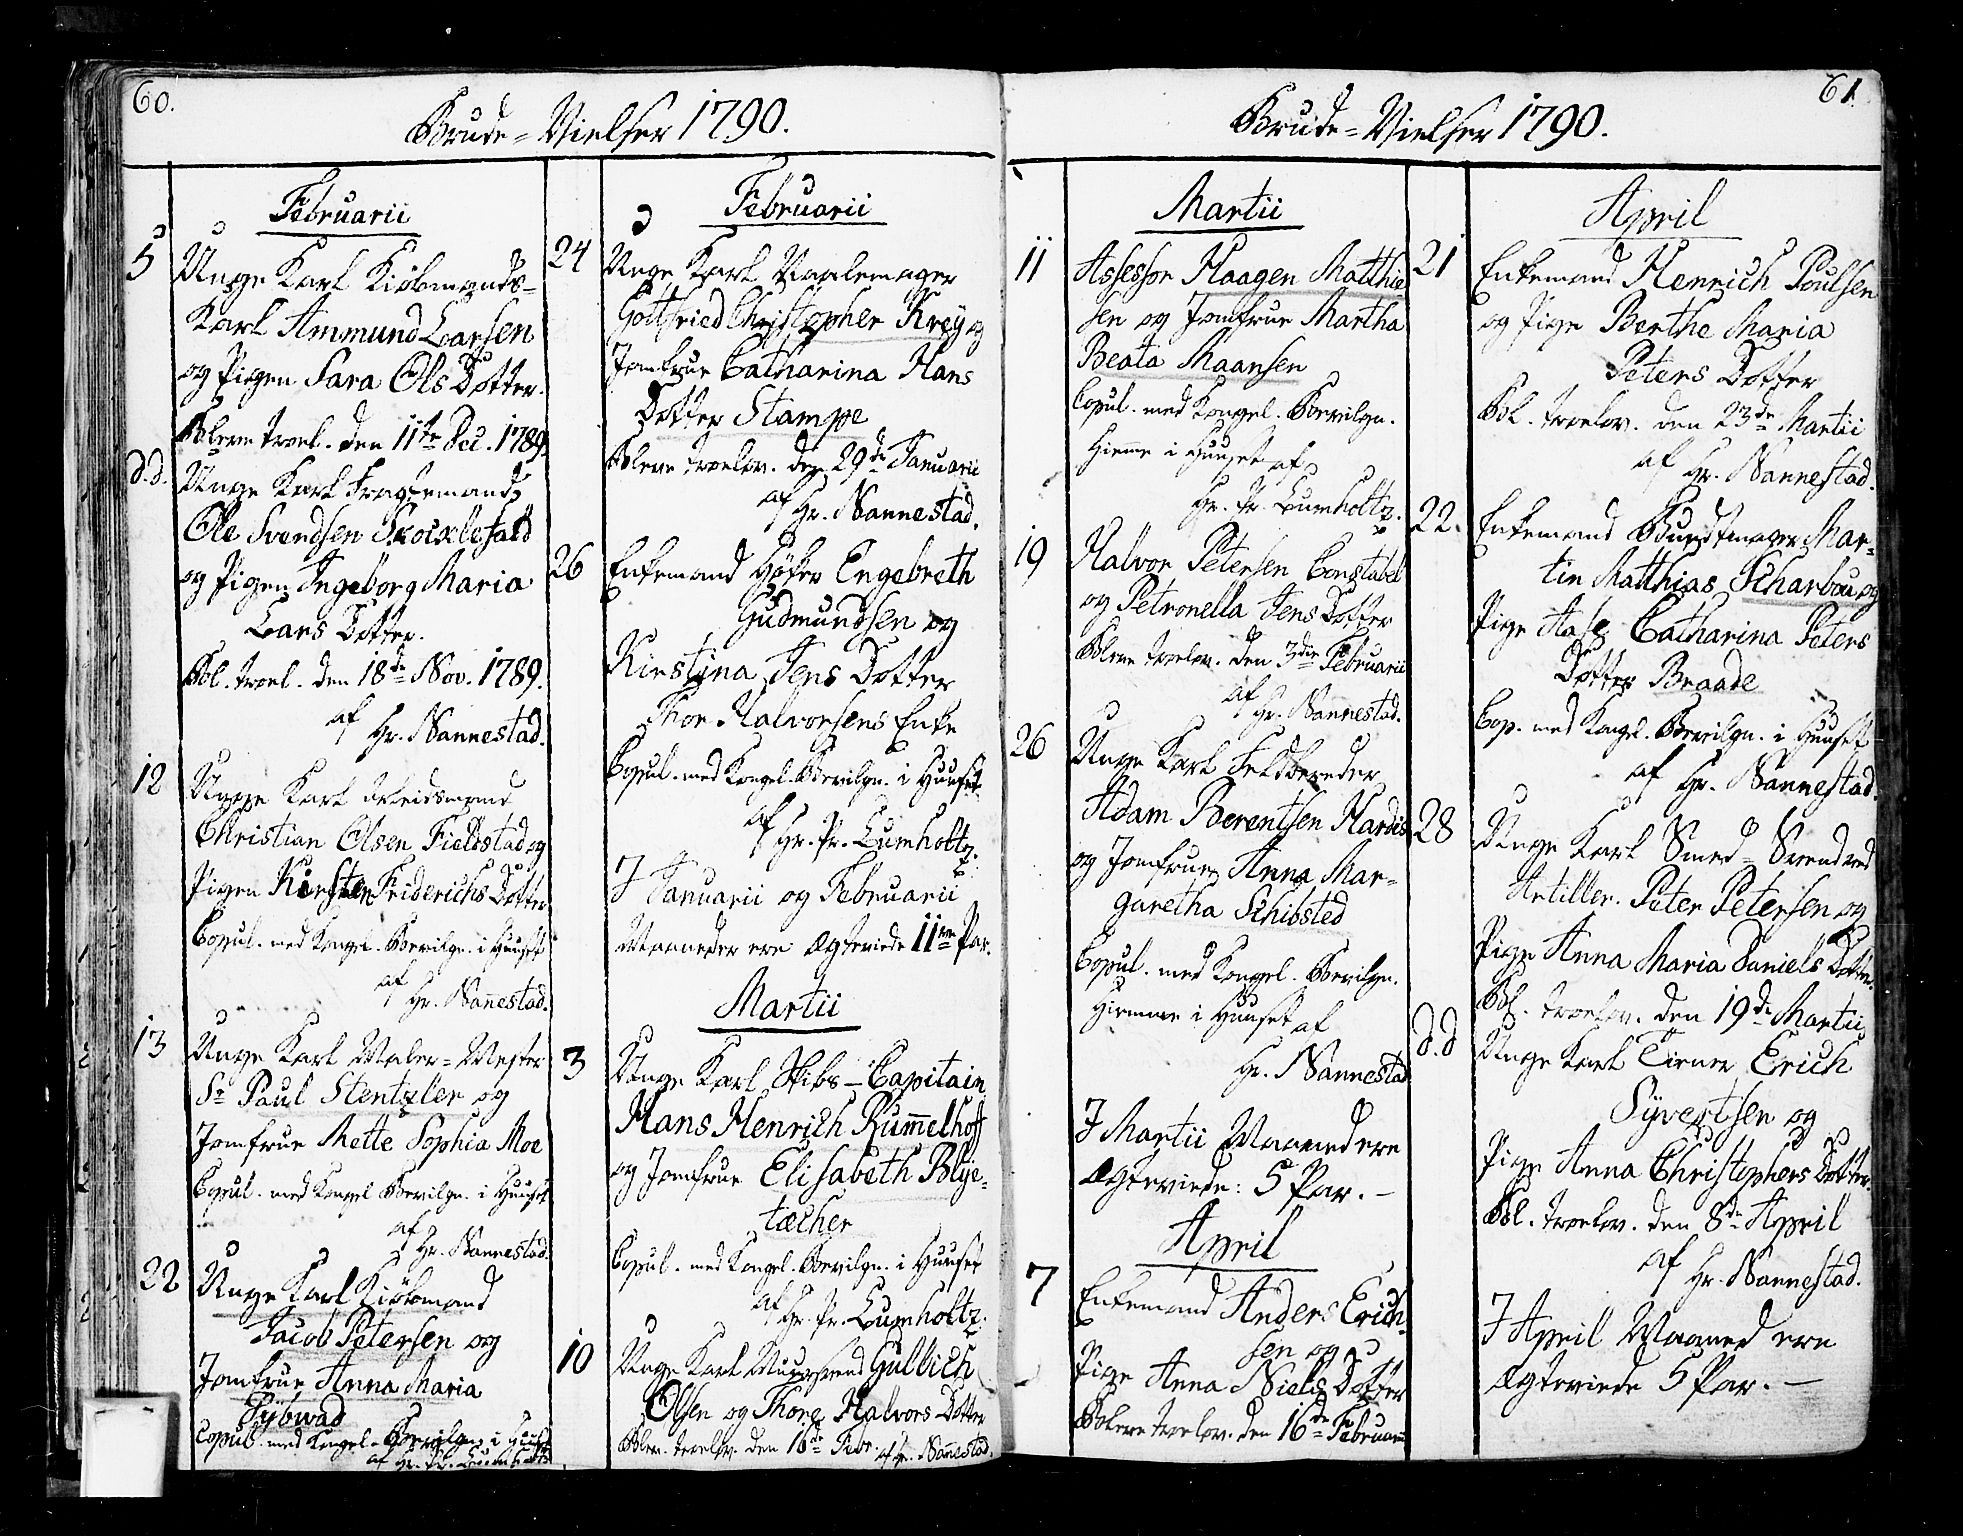 60.
Brude-Vielser 1790.
Februarii
5 Unge Karl Kiöbmands-
Karl Ammund Larsen
og Pigen Sara Ols Dotter.
Bleve troel. den 11te Dec. 1789.
d.d. Unge Karl
Ole Svendsen
og Pigen Ingeborg Maria
Lars Dotter.
Bl. troel. den 18de Nov. 1789.
af
Hr. Nannestad.
12 Unge Karl Arbeidsmand
Christian Olsen Fieldstad og
Pigen Kirsten Friderichs Dotter
Copul. med Kongel. Bevilgn. i Huuset
af
Hr. Nannestad.
13 Unge Karl Maler-Mester
Sr Paul Stentzler og
Jomfrue Mette Sophia Moe
Copul. med Kongel Bevilgn. i Huuset
af
Hr. Nannestad.
22 Unge Karl Kiöbmand
Jacob Petersen og
Jomfrue Anna Maria
Sybwad
Copul. med Kongel. Bevilgn. i Huuset
af Hr. Pr. Lumholtz
Februarii
24 Unge Karl Naalemager
Gottfried Christopher Krey og
Jomfrue Catharina Hans
Dotter Stampe
Bleve troelov. den 29de Januarii
af
Hr. Nannestad.
26 Enkemand Höker Engebreth
Gudmundsen og
Kirstina Jens Dotter
Thor Halvorsens Enke
Copul. med Kongel. Bevilgn. i Huuset
af
Hr. Pr. Lumholtz.
I Januarii og Februarii
Maaneder ere Ægteviede 11ve Par.
Martii
3 Unge Karl Skibs-Capitain
Hans Henrich Rummelhoff
og Jomfrue Elisabeth Blye-
tæcher
Copul. med Kongel. Bevilgn. i Huuset
af
Hr. Pr. Lumholtz.
10 Unge Karl Muursvend Gulbich
Olsen og Thore Halvors-Dotter
Blev. troelov. den 16de Febr. af Hr. Nannestad.
61
Brude-Vielser 1790.
Martii
11 Assessor Haagen Matthie
sen og Jomfrue Martha
Beata Maansen
Copul. med Kongel. Bevilgn.
Hiemme i Huuset af
Hr. Pr. Lumholtz.
19 Halvor Petersen Constabel
og Petronella Jens Dotter
Bleve troelov. den 3die Februarii
af
Hr. Nannestad.
26 Unge Karl Feldbereder
Adam Berentsen Hardis
og Jomfrue Anna Mar-
garetha Schibsted
Copul. med Kongel. Bevilgn.
Hiemme i Huuset af
Hr. Nannestad
I Martii Maaned ere
Ægteviede: 5 Par.-
April
7 Enkemand Anders Erich-
sen og
Pige Anna Niels Dotter
Bleve troelov. den 16de Februarii
April
21 Enkemand Henrich Poulsen
og Pige Berthe Maria
Peters Dotter
Bl. troelov. den 23de Martii
af
Hr. Nannestad.
22. Enkemand Bundtmager Mar-
tin Matthias Scharbou og
Pige Aase Catharina Peters
Dotter Braade
Cop. med Kongel. Bevilgn. i Huuset
af
Hr. Nannestad.
28 Unge Karl Smed-Svend ved
Artiller. Peter Petersen og
Pige Anna Maria Daniels Dotter.
Bl. troelov. den 19de Martii
d.d Unge Karl Tiener Erich
Syvertsen og
Pige Anna Christophers Dotter.
Bl. troelov. den 8de April
af
Hr. Nannestad.
I April Maaned ere
Ægteviede 5 Par.-